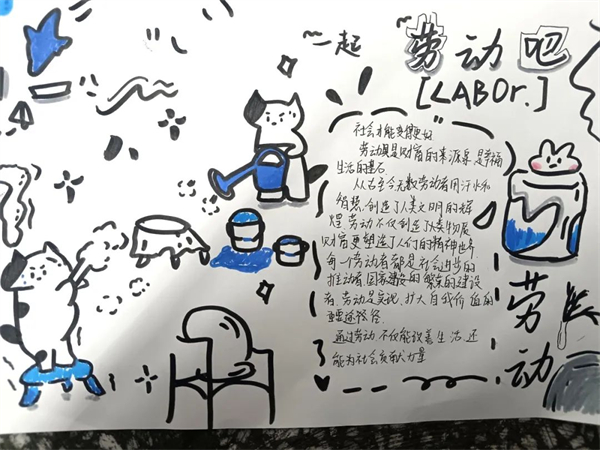 一起
劳动吧
[LABOr.]
社会才能变得更好
劳动是财富的来源，是幸福
生活的基石
从古至今无数劳动者用汗水和
智慧，创造了人类文明的辉
煌，劳动不仅创造了大类物质
财富更塑造了人们的精神世界
每一个劳动者都是社会进步的
推动者，国家建设的繁荣的建设
者，劳动是实现、扩大自我价值的
重要途径
通过劳动不仅能改善生活，还
能为社会贡献力量
劳
动